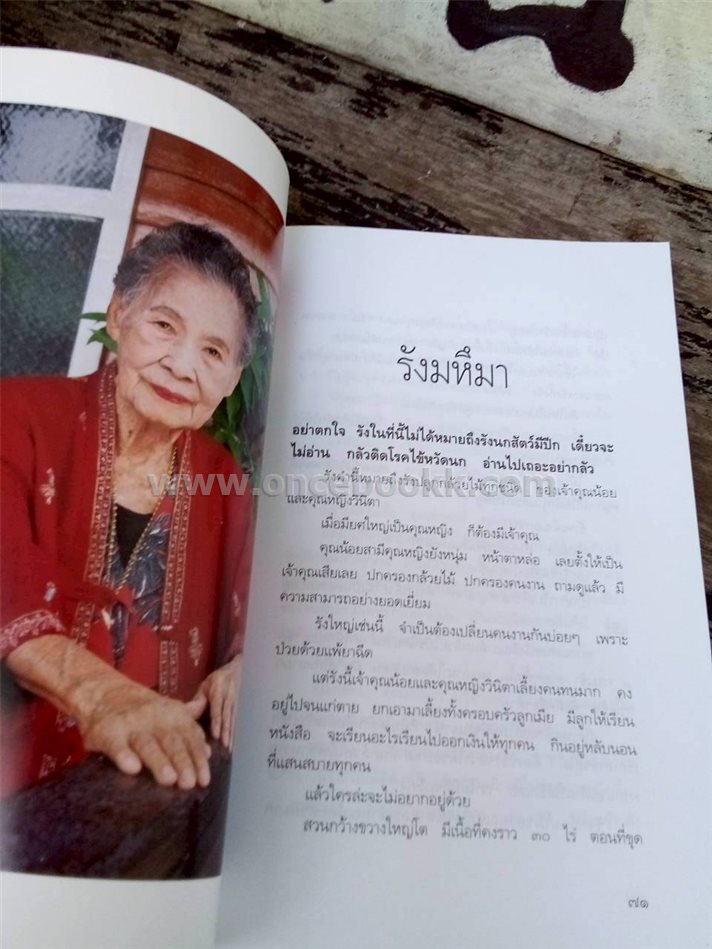 รังมหึมา
อย่าตกใจ รังในที่นี้ไม่ได้หมายถึงรังนกสัตว์มีปีก เดี๋ยวจะ
ไม่อ่าน กลัวติดโรคไข้หวัดนก อ่านไปเถอะอย่ากลัว
รังคำนี้หมายถึงรังปลูกกล้วยไม้ทุกชนิด ของเจ้าคุณน้อย
www.oncebookk.com
และคุณหญิงวินิตา
เมื่อมียศใหญ่เป็นคุณหญิง ก็ต้องมีเจ้าคุณ
คุณน้อยสามีคุณหญิงยังหนุ่ม หน้าตาหล่อ เลยตั้งให้เป็น
เจ้าคุณเสียเลย ปกครองกล้วยไม้ ปกครองคนงาน ถามดูแล้ว มี
ความสามารถอย่างยอดเยี่ยม
รังใหญ่เช่นนี้ จำเป็นต้องเปลี่ยนคนงานกันบ่อยๆ เพราะ
ป่วยด้วยแพ้ยาฉีด
แต่รังนี้เจ้าคุณน้อยและคุณหญิงวินิตาเลี้ยงคนทนมาก คง
อยู่ไปจนแก่ตาย ยกเอามาเลี้ยงทั้งครอบครัวลูกเมีย มีลูกให้เรียน
หนังสือ จะเรียนอะไรเรียนไปออกเงินให้ทุกคน กินอยู่หลับนอน
ที่แสนสบายทุกคน
แล้วใครล่ะจะไม่อยากอยู่ด้วย
สวนกว้างขวางใหญ่โต มีเนื้อที่คงราว ๓๐ ไร่ ตอนที่ขุด
๗๑